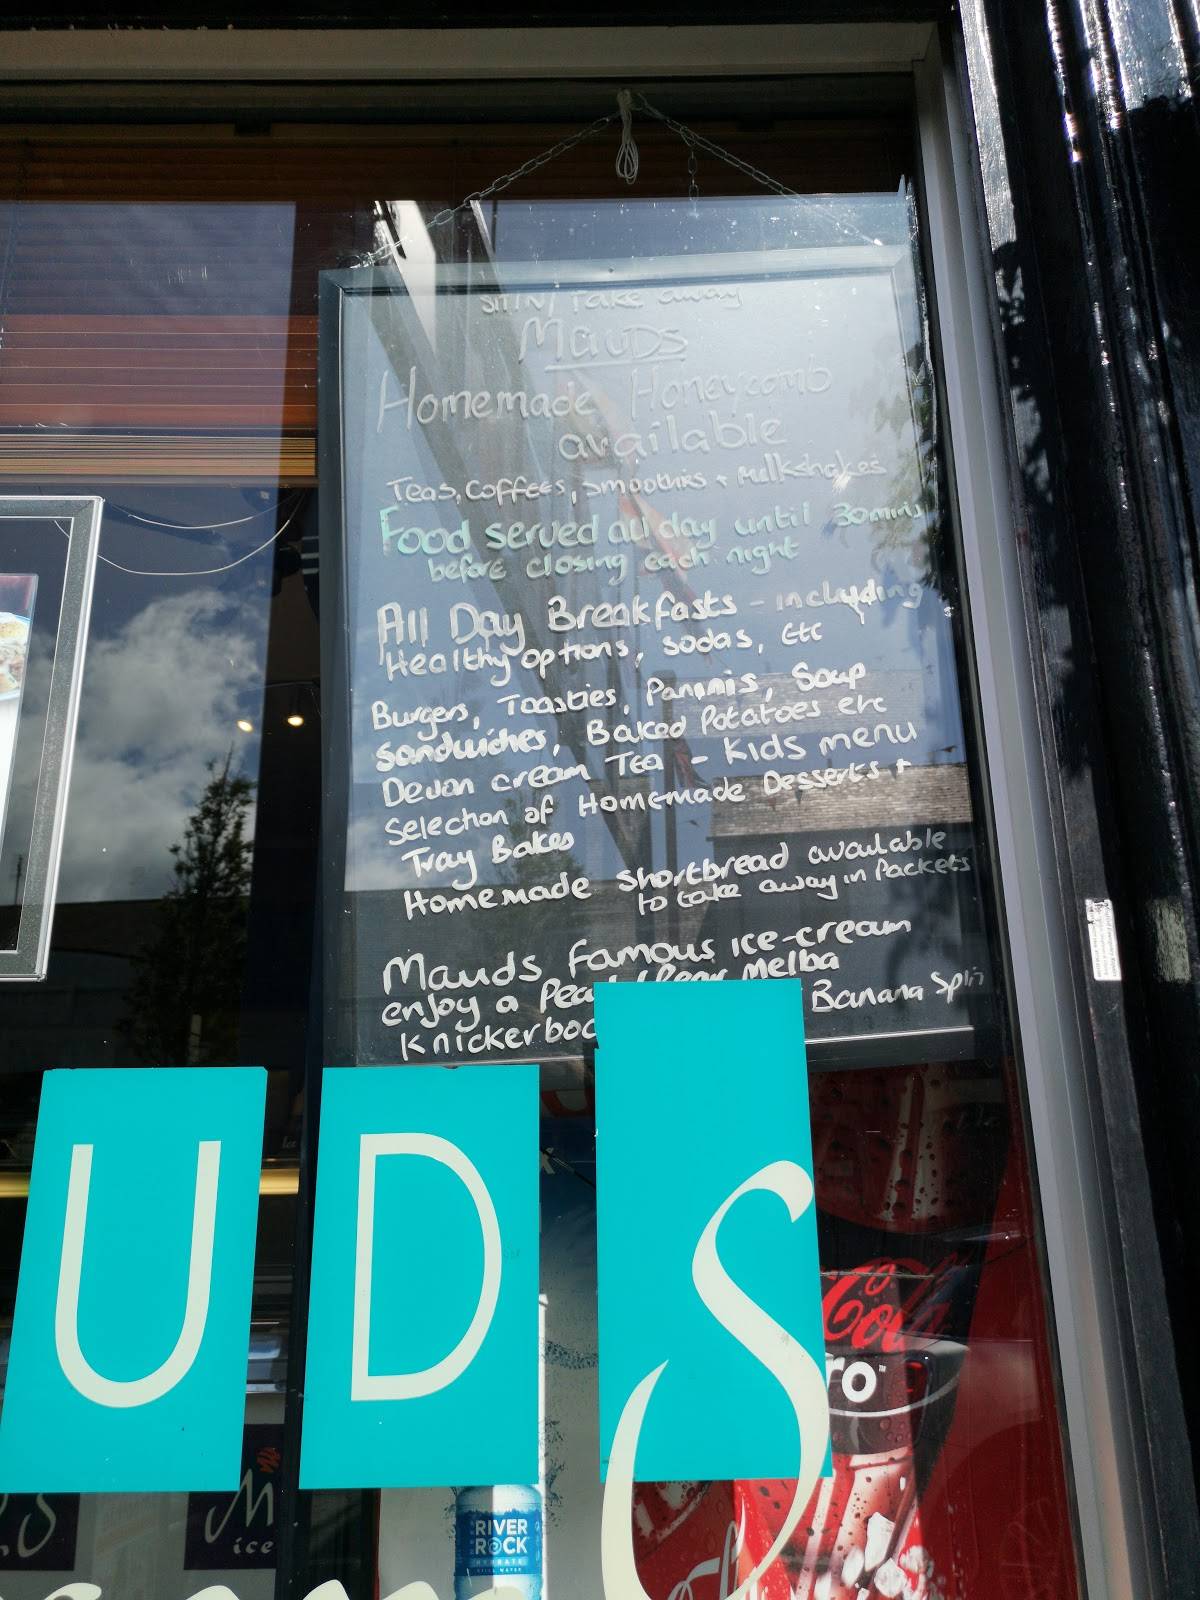 SIT IN / Take away
MauDS
Homemade Honeycomb
available
Teas, Coffees, Smoothies + Milkshakes
Food served all day until 30mins
before closing each night
All Day Breakfasts - including
Healthy options, sodas, Etc
Burgers, Toasties, Paninis, Soup
Sandwiches, Baked Potatoes etc
Devon cream Tea - Kids menu
Selection of Homemade Desserts +
Tray Bakes
Homemade Shortbread available
to take away in Packets
Mauds Famous ice-cream
enjoy a Pea Pear Melba
Banana Split
Knickerboc
U D S
Coca
Cola
ro™
M
ice
RIVER
ROCK
HYDRATE
STILL WATER